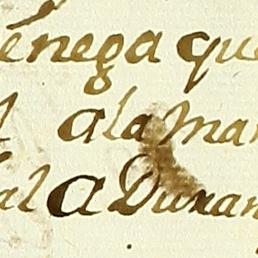 énega que
l ala mar
al A Duran